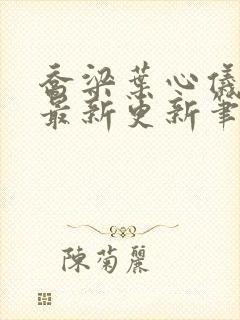 喬梁葉心儀
最新更新筆
陳菊麗